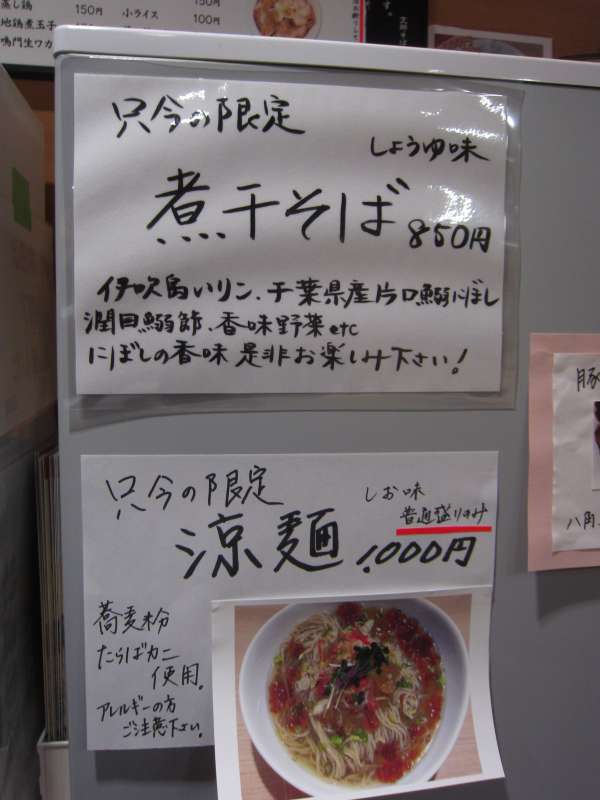 蒸し鶏 150円 小ライス 150円
地鶏煮玉子 100円
鳴門生ワカ
只今の限定
しょうゆ味
煮干そば 850円
伊吹島いりこ、千葉県産片口鰯にぼし
潤目鰯節、香味野菜etc
にぼしの香味 是非お楽しみ下さい!
只今の限定
しお味
普通盛りのみ
涼麺 1,000円
蕎麦粉
たらばカニ
使用。
アレルギーの方
ご注意下さい。
豚
八角、